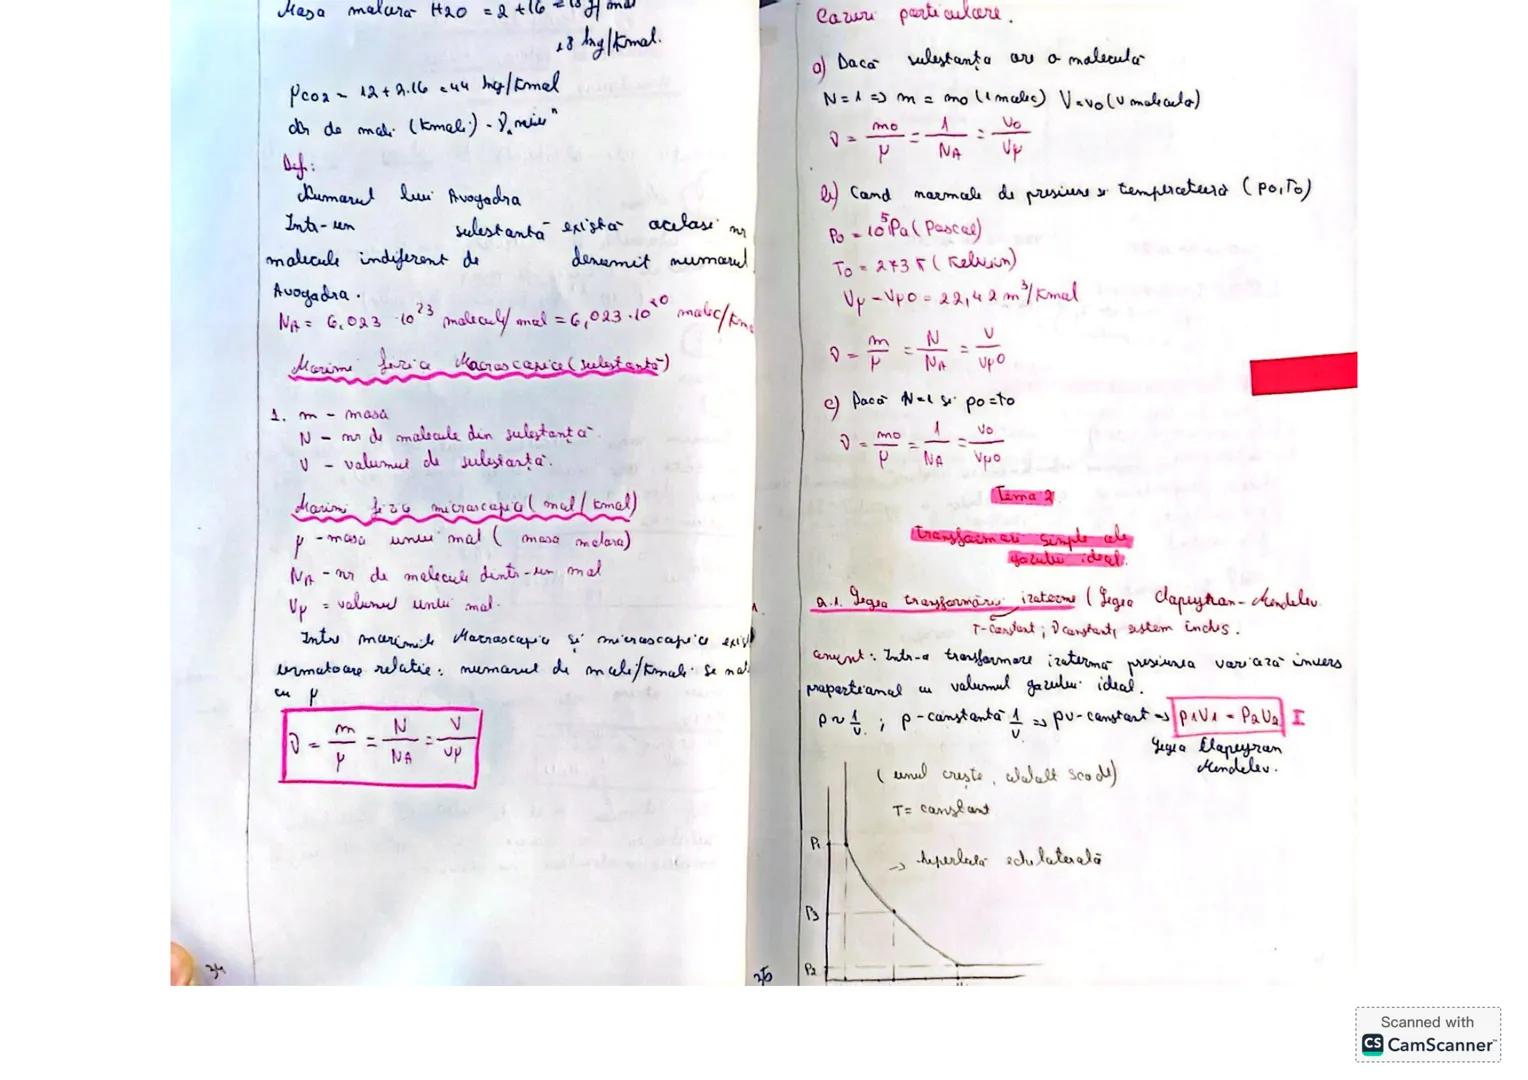 Masa molara H2O = 2 + 16 = 18 g/mol
18 kg/kmol.
μCO2 = 12 + 2.16 = 44 kg/kmol
dr de moli (kmoli) - ν
Def:
Numarul lui Avogadro
Intr-un substantă există acelasi nr
molecule indiferent de denumit numarul
Avogadro.
NA = 6,023 · 10^23 molecule/mol = 6,023 · 10 molec/kmo
Marimi fizice Macroscopice (substantă)
1. m - masa
N - nr de molecule din substanta.
V - volumul de substanta.
Marimi fizice microscopice (mol/kmol)
μ - masa unui mol (masa molara)
NA - nr de molecule dintr-un mol
Vμ = volumul unui mol.
Intre marimile Macroscopice si microscopice exist
urmatoare relatie: numarul de moli/kmoli se not
cu ν
ν = m/μ = N/NA = V/Vμ
3/4
Cazuri particulare.
a) Dacă substanța are o moleculă
N = 1 => m = mo (1 molec) V = vo (v molecula)
ν = mo/μ = 1/NA = Vo/Vμ
b) Cand normale de presiune si temperatura (po, To)
Po = 10^5 Pa (Pascal)
To = 273 K (Kelvin)
Vμ = Vμo = 22,42 m³/Kmol
ν = m/μ = N/NA = V/Vμo
c) Dacă N=1 si po = to
ν = mo/μ = 1/NA = Vo/Vμo
Tema 2
transformari simple ale
gazului ideal.
2.1. Legea transformării izoterme (Legea Clapeyran-Mendelev.
T-constant; ν constant, sistem inchis.
enunt: Intr-o transformare izotermă presiunea variază invers
proportional cu volumul gazului ideal.
p ~ 1/v. ; p - constantă 1/v => pv - constant => p1V1 = P2V2 I
Legea Clapeyran
Mendelev.
(unul creste, celalalt scade)
T = constant
P1
-> hiperbolă echilaterală
P3
P2
3/5
Scanned with
CS CamScanner